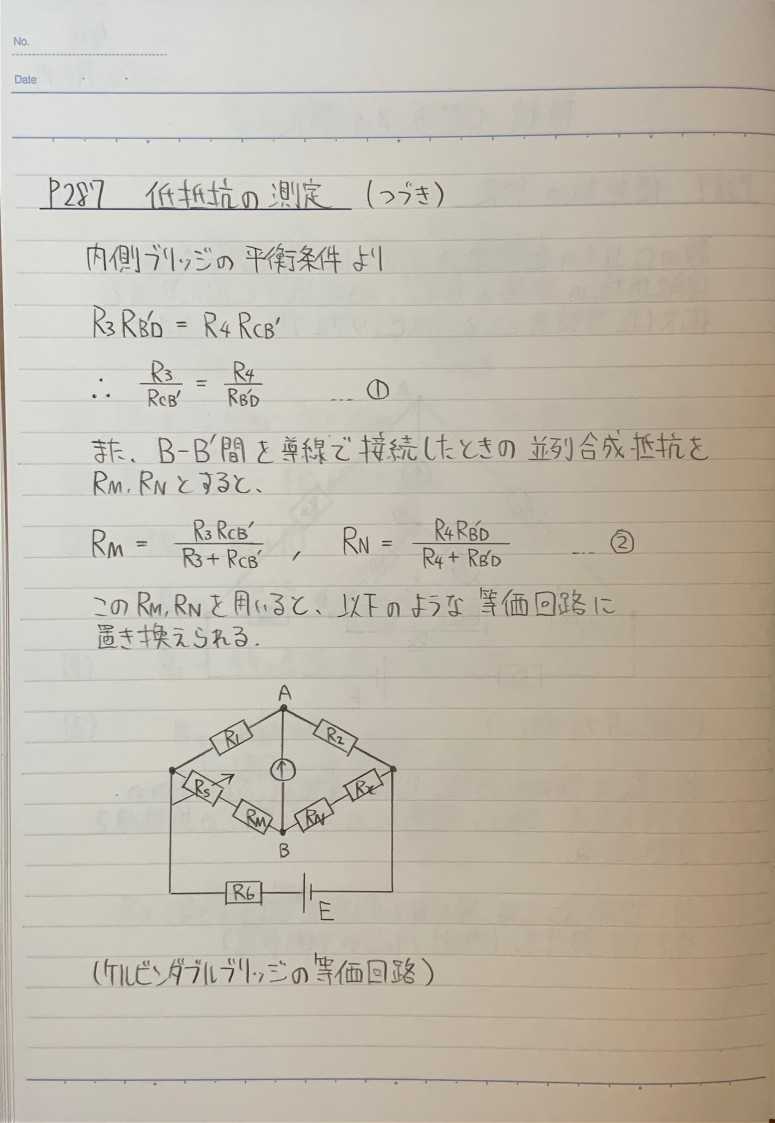 No.
Date
P287 低抵抗の測定 (つづき)
内側ブリッジの平衡条件より
R3 RB'D = R4 RCB'
∴ R3/RCB' = R4/RB'D ... ①
また、B-B'間を導線で接続したときの並列合成抵抗を
RM, RNとすると、
RM = R3 RCB'/R3 + RCB' , RN = R4 RB'D/R4 + RB'D ... ②
このRM, RNを用いると、以下のような等価回路に
置き換えられる.
A
R1 R2
Rs Rx
RM RN
B
R6
E
(ケルビンダブルブリッジの等価回路)